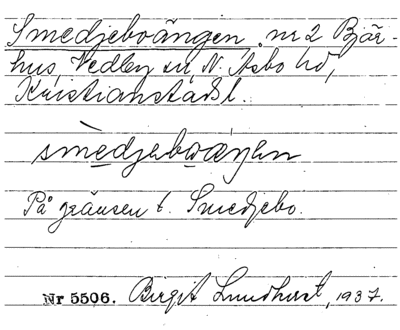 Smedjeboängen. nr 2 Bjär-
hus, Vedby sn, N. Åsbo hd,
Kristianstads l.
smèdjəbwäŋən
På gränsen t. Smedjebo.
Nr 5506. Birgit Lundkvist, 1937.